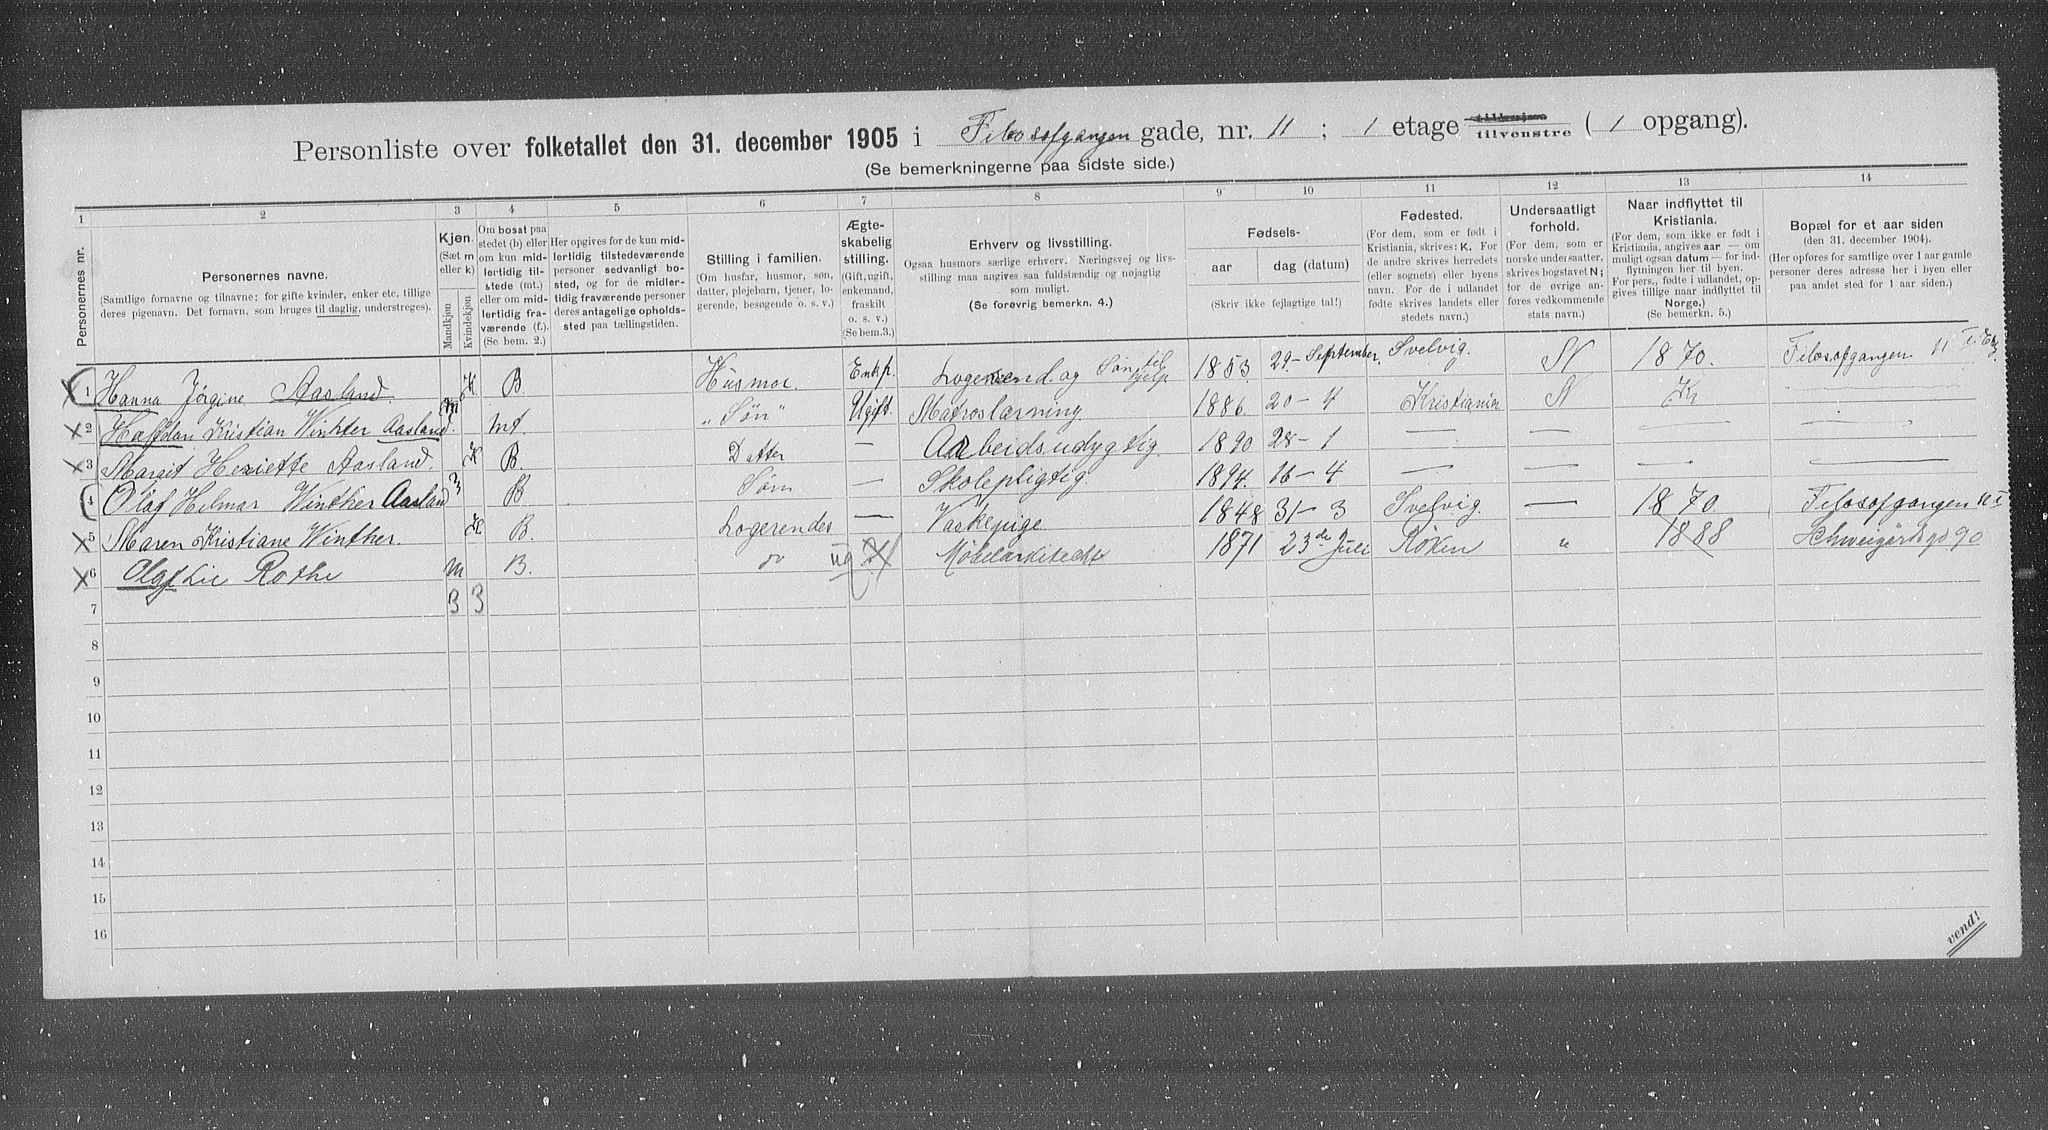 Personliste over folketallet den 31. december 1905 i Filosofgangen gade, nr. 11 ; 1 etage tilhøjre tilvenstre ( 1 opgang).
(Se bemerkningerne paa sidste side.)
1 2 3 4 5 6 7 8 9 10 11 12 13 14
Personernes nr.
Personernes navne.
(Samtlige fornavne og tilnavne; for gifte kvinder, enker etc. tillige deres pigenavn. Det fornavn, som bruges til daglig, understreges).
Kjøn.
(Sæt m eller k)
Mandkjøn
Kvindekjøn
Om bosat paa stedet (b) eller om kun midlertidig tilstede (mt.) eller om midlertidig fraværende (f.).
(Se bem. 2.)
Her opgives for de kun midlertidig tilstedeværende personer sedvanligt bosted, og for de midlertidig fraværende personer deres antagelige opholdssted paa tællingstiden.
Stilling i familien.
(Om husfar, husmor, søn, datter, plejebarn, tjener, logerende, besøgende o. s. v.)
Ægteskabelig stilling.
(Gift, ugift, enkemand, fraskilt o. s. v.)
(Se bem.3.)
Erhverv og livsstilling.
Ogsaa husmors særlige erhverv. Næringsvej og livsstilling maa angives saa fuldstændig og nøjagtig som muligt.
(Se forøvrig bemerkn. 4.)
Fødsels-
aar dag (datum)
(Skriv ikke fejlagtige tal!)
Fødested.
(For dem, som er født i Kristiania, skrives: K. For de andre skrives herredets (eller sognets) eller byens navn. For de i udlandet fødte skrives landets eller stedets navn.)
Undersaatligt forhold.
(For dem, som er norske undersaatter, skrives bogstavet N; for de øvrige anføres vedkommende stats navn.)
Naar indflyttet til Kristiania.
(For dem, som ikke er født i Kristiania, angives aar — om muligt ogsaa datum — for indflytningen her til byen. For pers., fødte i udlandet, opgives tillige naar indflyttet til Norge.)
(Se bemerkn. 5.)
Bopæl for et aar siden
(den 31. december 1904).
(Her opføres for samtlige over 1 aar gamle personer deres adresse her i byen eller paa andet sted for 1 aar siden.)
1 Hanna Jørgine Aasland. K B Husmor. Enkp. Logerend og Søn til hjelp 1853 29- September. Svelvig. N 1870. Filosofgangen 11 I Etg
2 Halfdan Kristian Winther Aasland. m mt. "Søn" Ugift. Matroslærning 1886. 20 - 4 Kristiania N Kr
3 Margit Heriette Aasland. K B. Datter — Arbeidsudygtig 1890 28 - 1 — —
4 Olaf Helmar Winther Aasland B Søn — Skolepligtig 1894. 16 - 4 — —
5 Maren Kristiane Winther. K B. Logerendes — Vaskepige 1848 31 - 3 Svelvig. — 1870 Filosofgangen 11 I
6 Olaf Lie Rothe m B. do ug Møbelarkitekt 1871 23de Juli Røken " 1888 Schweigårdsgd 90
7 3 3
8
9
10
11
12
13
14
15
16
vend!